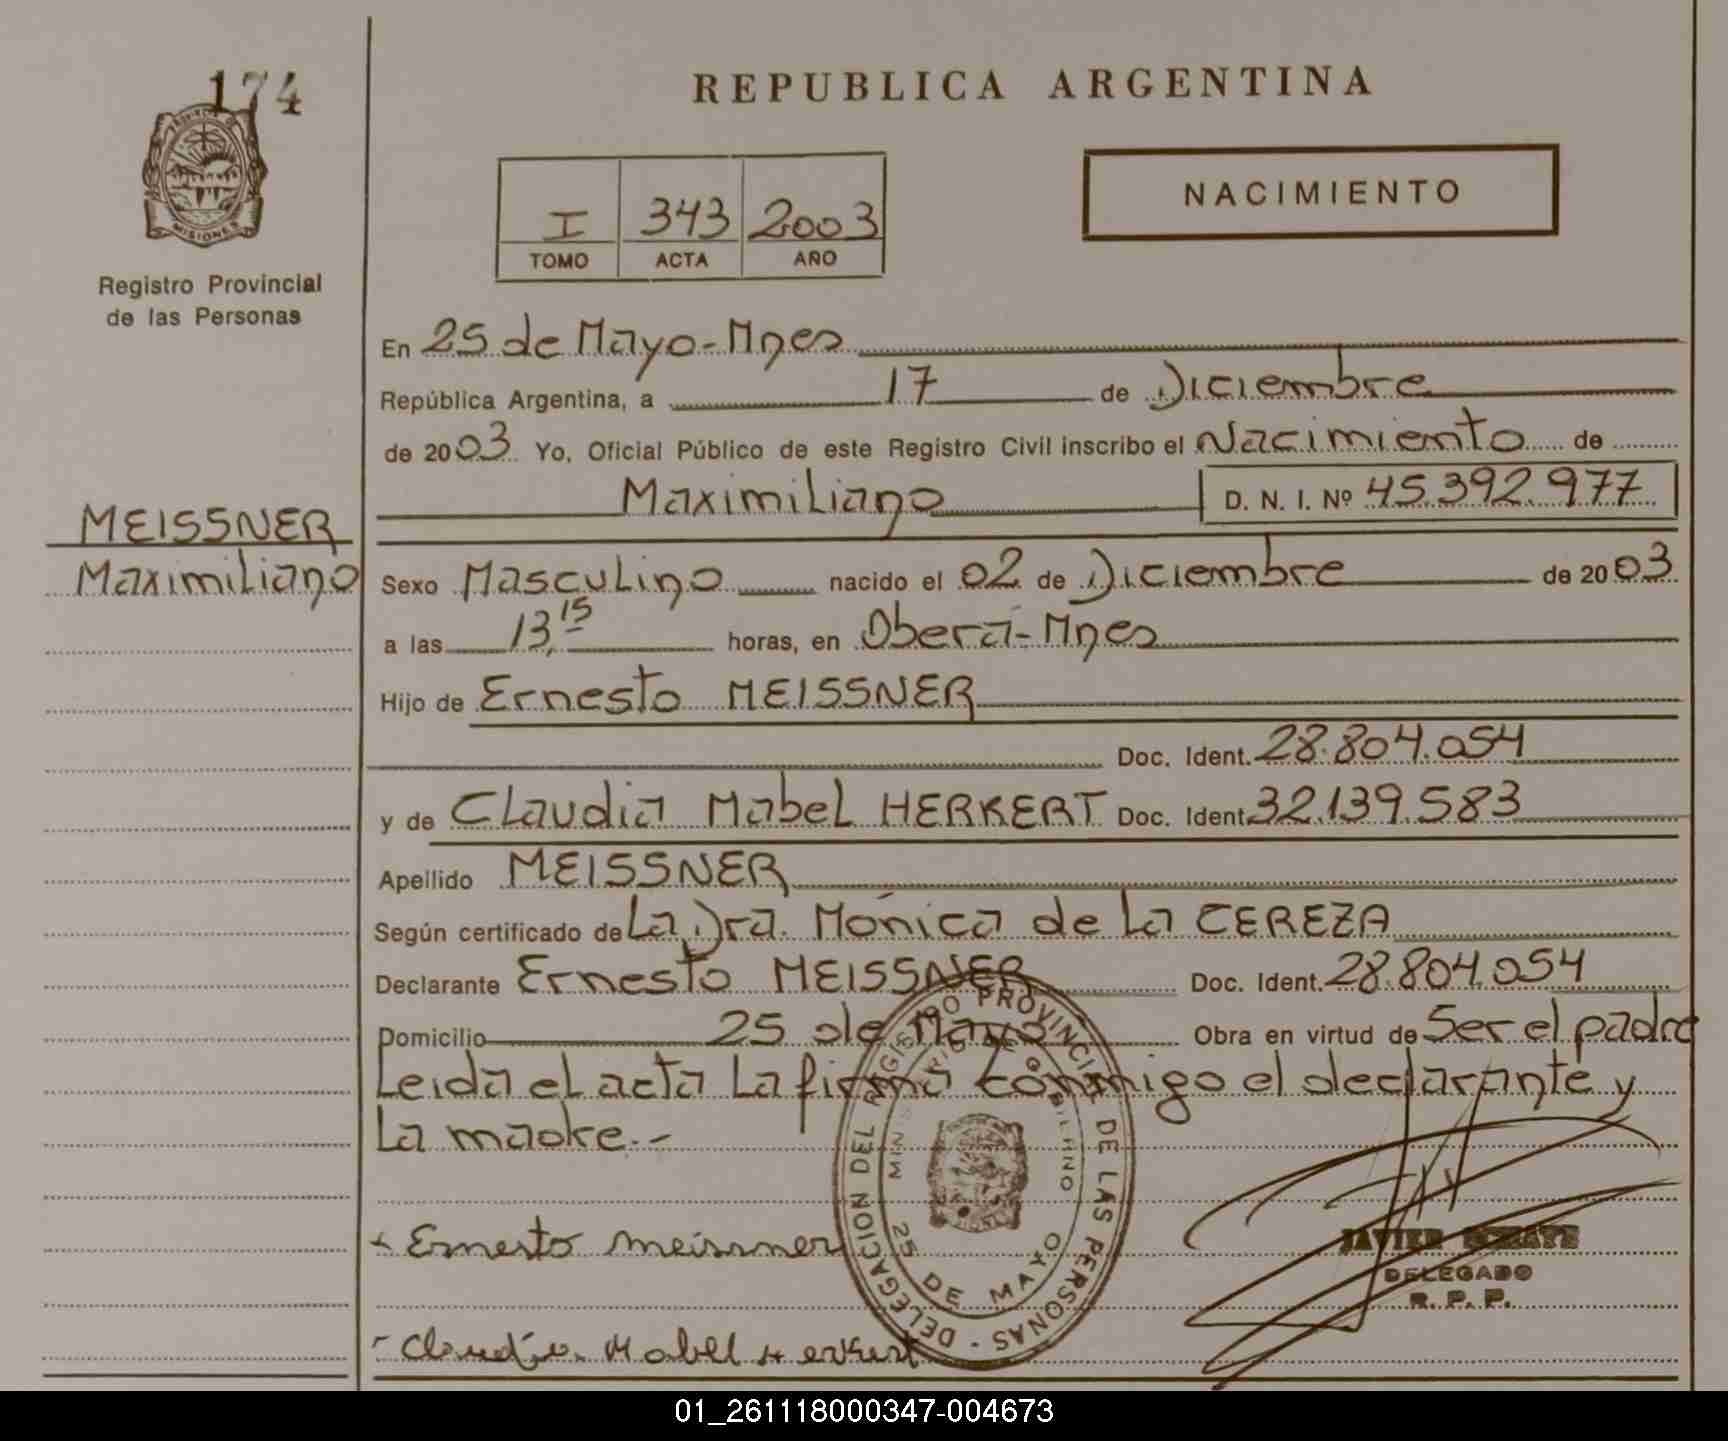 174
REPUBLICA ARGENTINA
PROVINCIA D
MISIONES
Registro Provincial
de las Personas
I 343 2003
TOMO ACTA AÑO
NACIMIENTO
En 25 de Mayo-Mnes
República Argentina, a 17 de Diciembre
de 2003 Yo, Oficial Público de este Registro Civil inscribo el Nacimiento de
Maximiliano D. N. I. Nº 45.392.977
MEISSNER
Maximiliano
Sexo Masculino nacido el 02 de Diciembre de 2003
a las 13,15 horas, en Oberá-Mnes
Hijo de Ernesto MEISSNER
Doc. Ident. 28.804.054
y de Claudia Mabel HERKERT Doc. Ident. 32.139.583
Apellido MEISSNER
Según certificado de La Dra. Mónica de La CEREZA
Declarante Ernesto MEISSNER Doc. Ident. 28.804.054
Domicilio 25 de Mayo Obra en virtud de Ser el padre
Leida el acta La firma conmigo el declarante y
La madre.-
DELEGACION DEL REGISTRO PROVINCIAL DE LAS PERSONAS -
25 DE MAYO
Ernesto meissner
JAVIER
DELEGADO
R. P. P.
Claudia Mabel Herkert
01_261118000347-004673